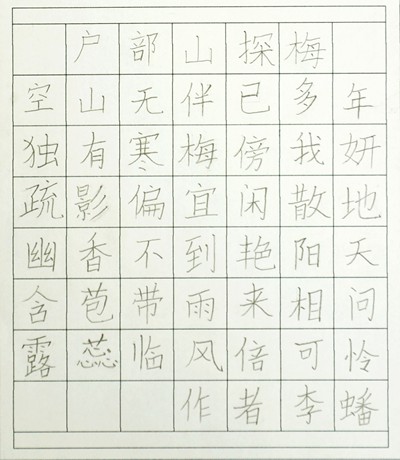 户部山探梅
空山无伴已多年
独有寒梅傍我妍
疏影偏宜闲散地
幽香不到艳阳天
含苞带雨来相问
露蕊临风倍可怜
作者李蟠